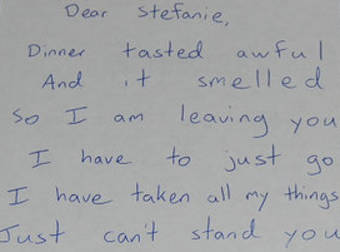 Dear Stefanie,
Dinner tasted awful
And it smelled
So I am leaving you
I have to just go
I have taken all my things
Just can't stand you